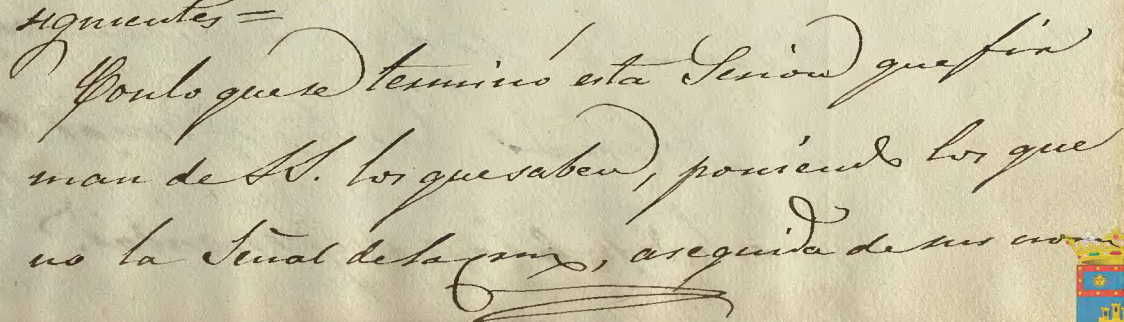 siguientes=
Con lo que se terminó esta Sesion que fir
man de SS. los que saben, poniendo los que
no la Señal de la cruz, aseguida de sus nom